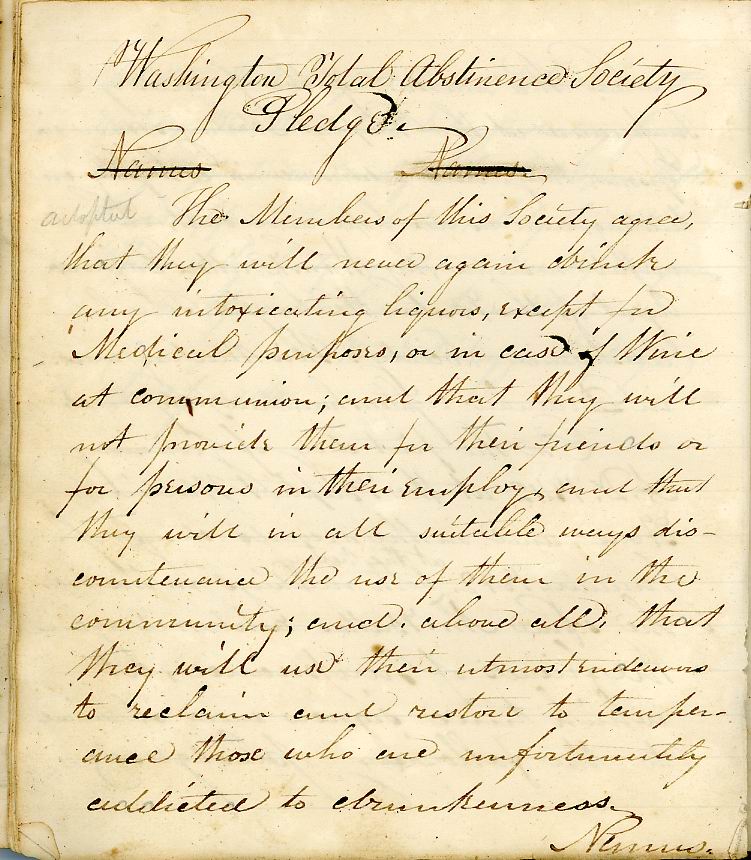 Washington Total Abstinence Society
Pledge.
Names Names.
adopted The Members of this Society agree,
that they will never again drink
any intoxicating liquors, except for
Medical purposes, or in case of Wine
at communion; and that they will
not provide them for their friends or
for persons in their employ, and that
they will in all suitable ways dis-
countenance the use of them in the
community; and, above all, that
they will use their utmost endeavors
to reclaim and restore to temper-
ance those who are unfortunately
addicted to drunkenness.
Names.